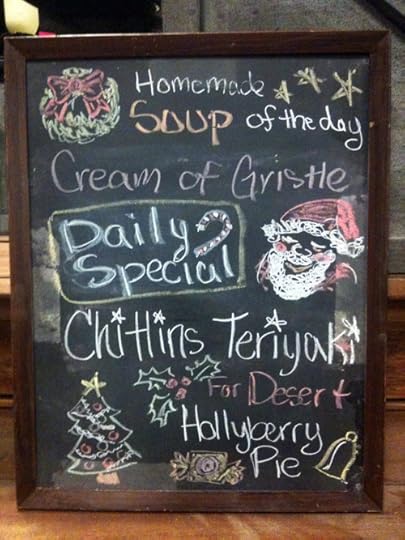 Homemade
Soup of the day
Cream of Gristle
Daily
Special
Chittlins Teriyaki
For Desert
Hollyberry
Pie